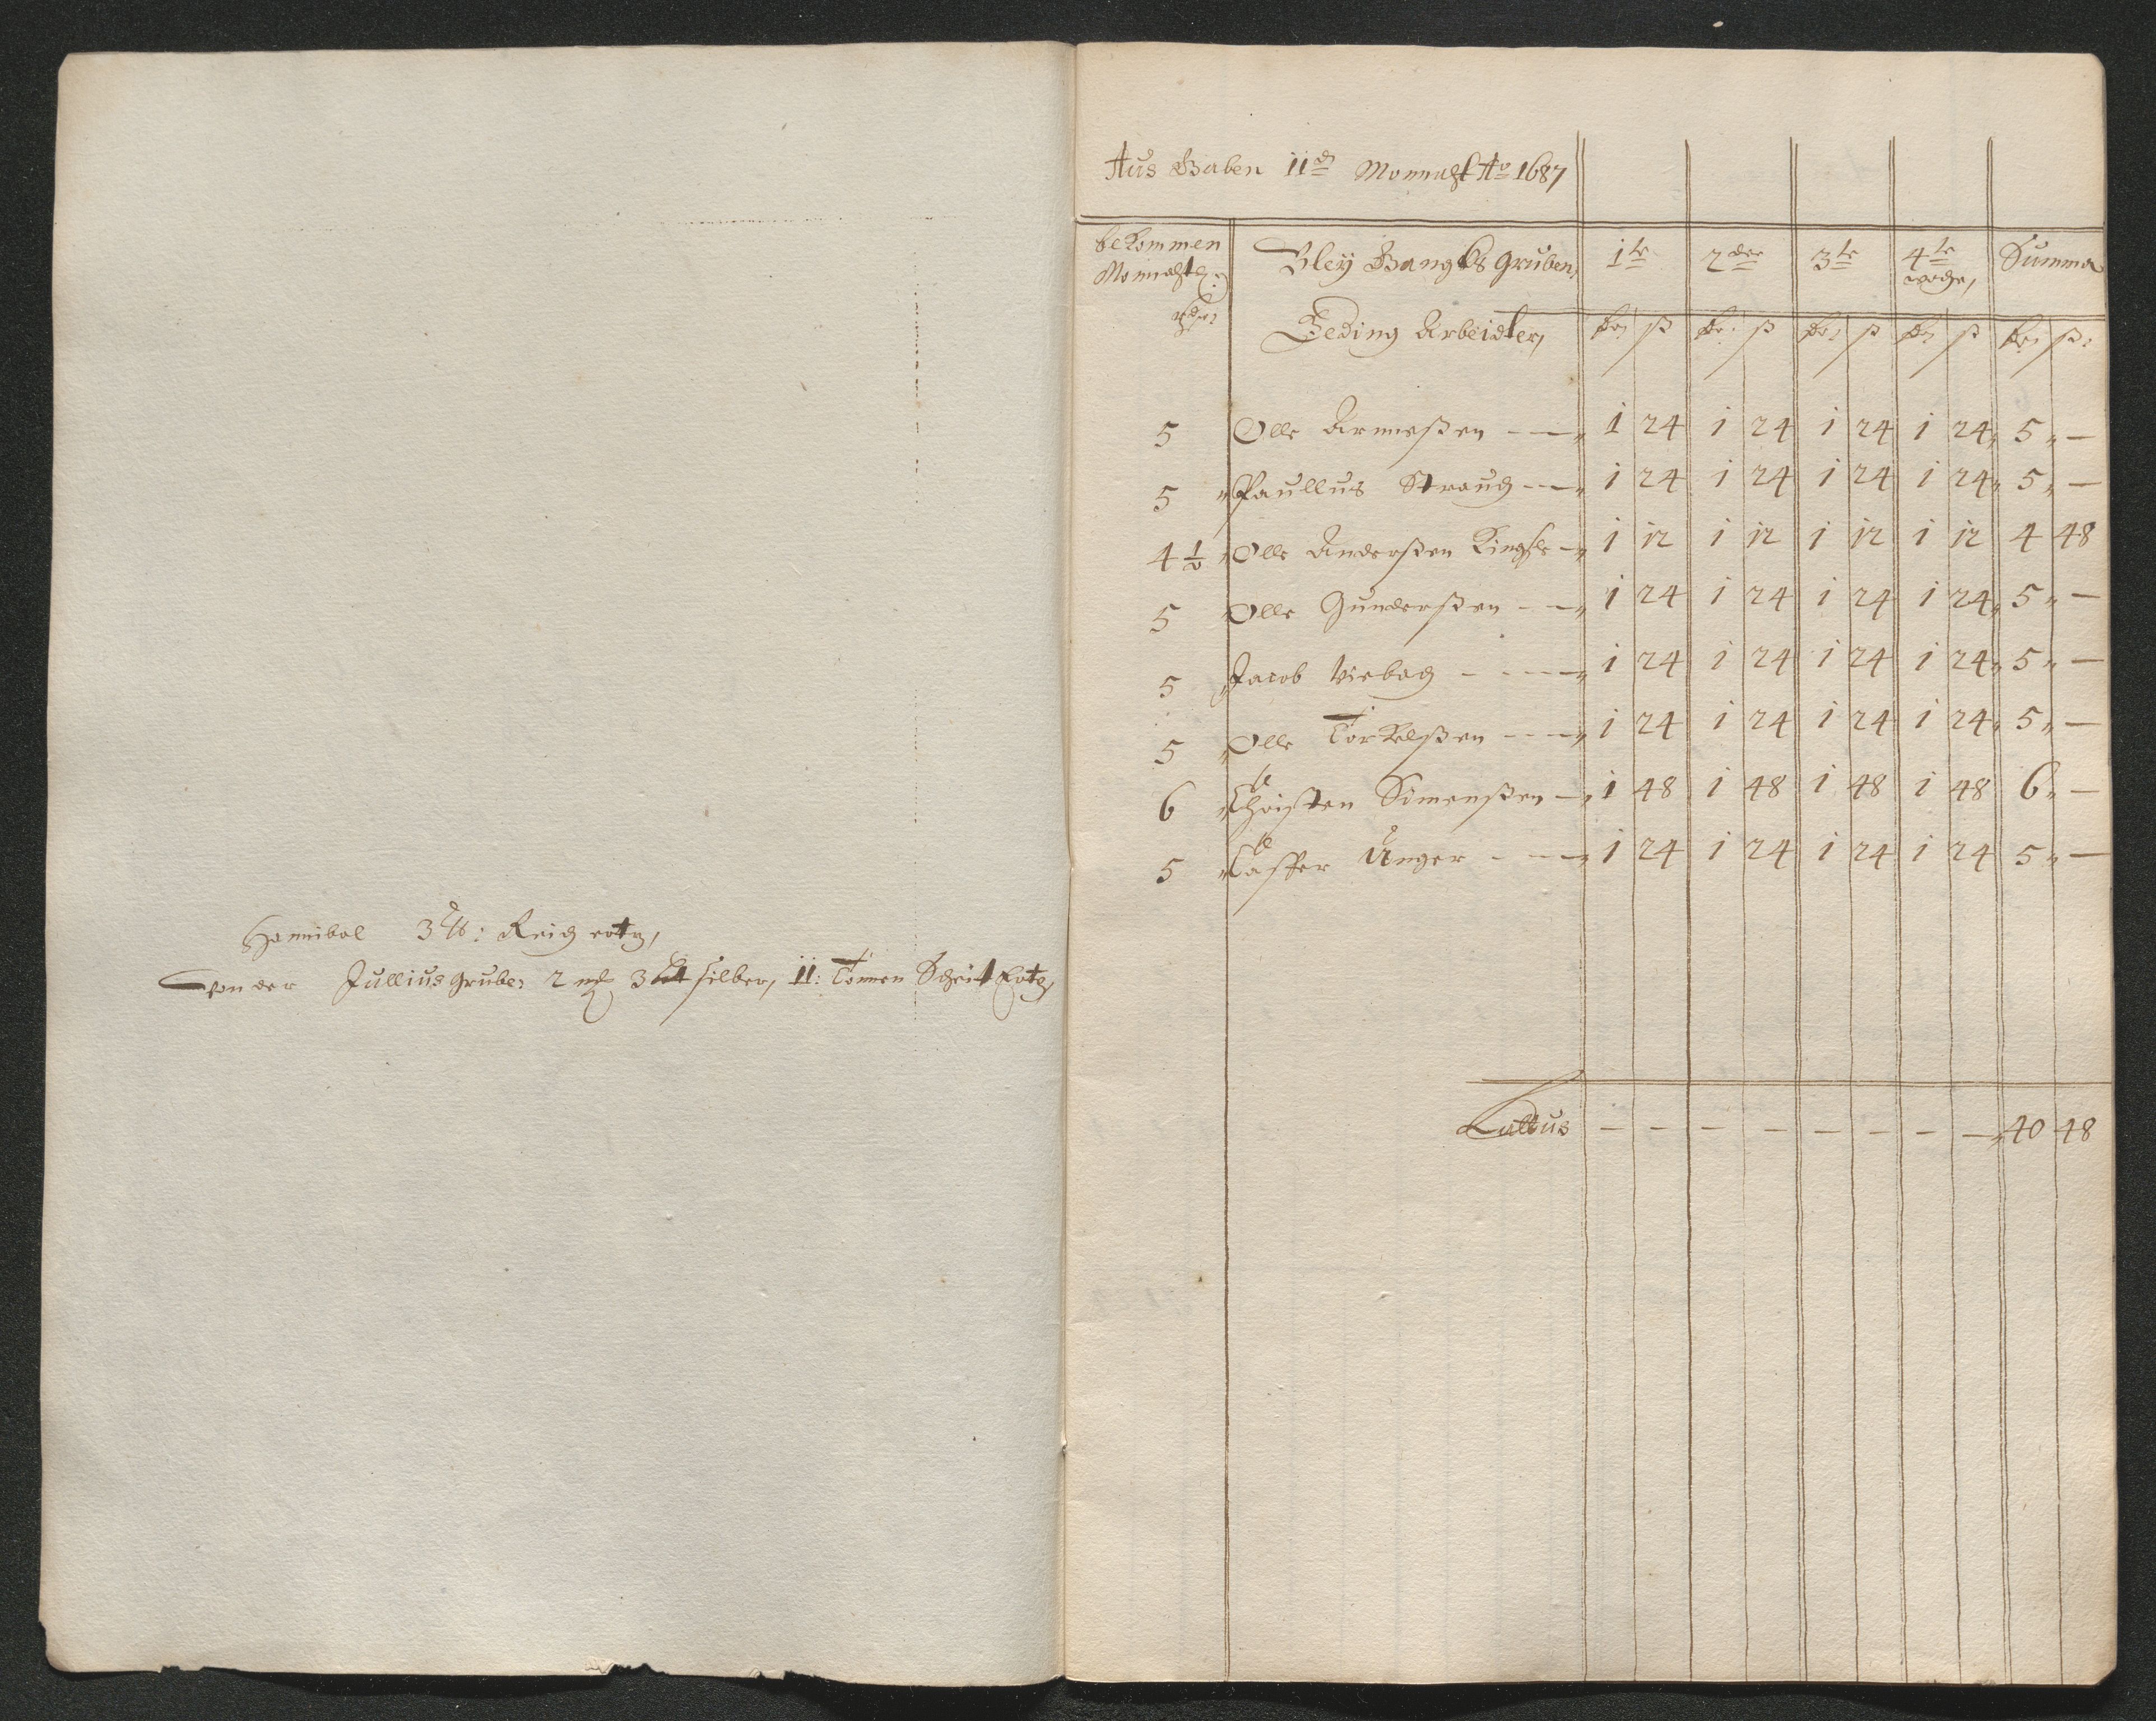 Hannibal 3 ℔: Reich ertz,
Von der Jullius Grube: 2 mk 3 Lt silber, 11: Tonnen Scheit Ertz,
Aus Gaben 11d Monnaht Ao 1687
bekommen
Monnahtl:
Rdr:
Bley Gangks Gruben,
1te 2der 3te 4te woche, Summa
Geding Arbeidter,
Dr ß Dr ß Dr ß Dr ß Dr ß
5 Olle Arnneßen 1 24 1 24 1 24 1 24 5 —
5 Paullus Straug 1 24 1 24 1 24 1 24 5 —
4 1/2 Olle Anderßen 1 12 1 12 1 12 1 12 4 48
5 Olle Gunderßen 1 24 1 24 1 24 1 24 5 —
5 Jacob Viebag 1 24 1 24 1 24 1 24 5 —
5 Olle Torkelßen 1 24 1 24 1 24 1 24 5 —
6 Christen Simenßen 1 48 1 48 1 48 1 48 6 —
5 Casper Unger 1 24 1 24 1 24 1 24 5 —
Lattus — — — — — — — — 40 48